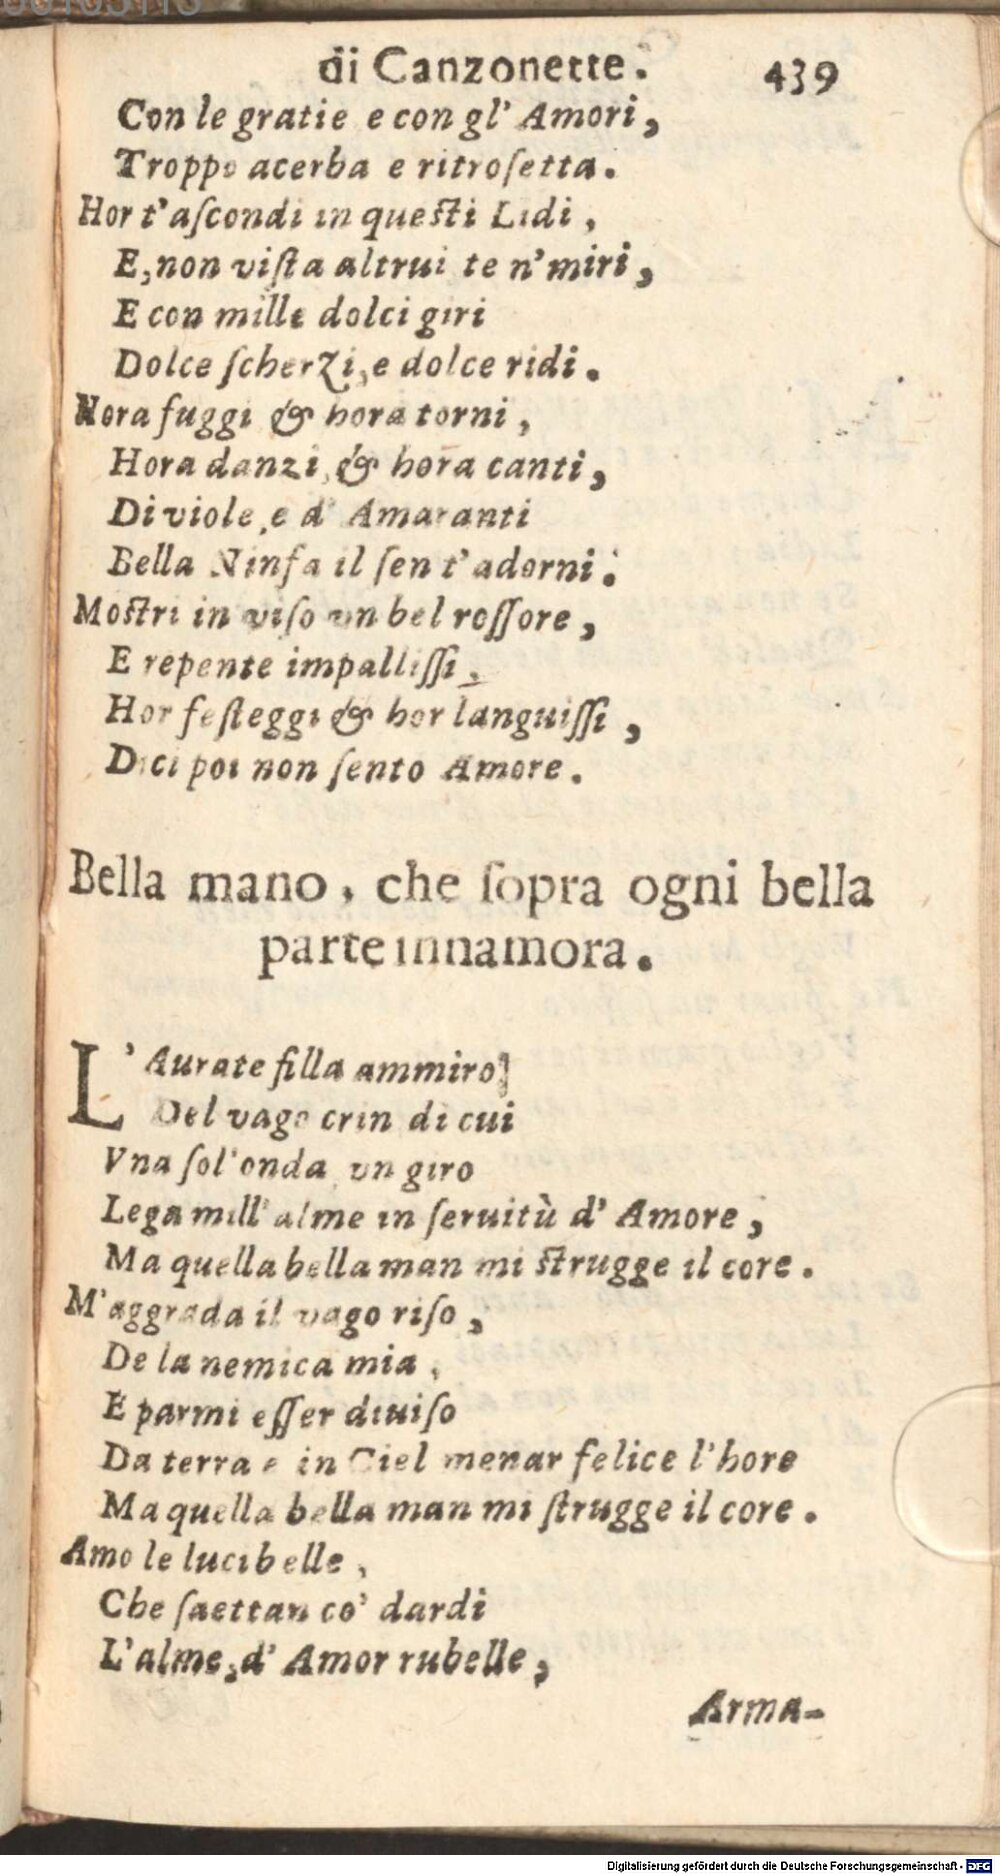 di Canzonette. 439
Con le gratie e con gl' Amori,
Troppo acerba e ritroſetta.
Hor t'aſcondi in queſti Lidi,
E, non viſta altrui te n'miri,
E con mille dolci giri
Dolce ſcherzi, e dolce ridi.
Hora fuggi & hora torni,
Hora danzi, & hora canti,
Di viole, e d' Amaranti
Bella Ninfa il ſen t'adorni:
Moſtri in viſo vn bel roſſore,
E repente impalliſſi,
Hor feſteggi & hor languiſſi,
Dici poi non ſento Amore.
Bella mano, che ſopra ogni bella
parte innamora.
L'Aurate filla ammiro
Del vago crin di cui
Vna ſol'onda, vn giro
Lega mill'alme in ſeruitù d' Amore,
Ma quella bella man mi ſtrugge il core.
M'aggrada il vago riſo,
De la nemica mia,
E parmi eſſer diuiſo
Da terra e in Ciel menar felice l'hore
Ma quella bella man mi ſtrugge il core.
Amo le luci belle,
Che ſaettan co' dardi
L'alme, d' Amor rubelle,
Arma-
Digitalisierung gefördert durch die Deutsche Forschungsgemeinschaft - DFG